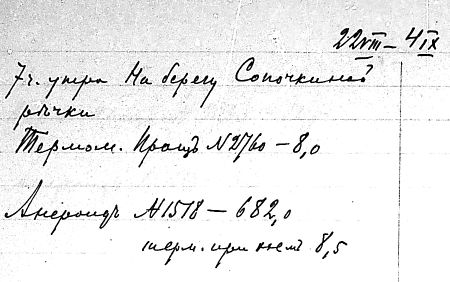 22 VIII – 4 IX
7 ч. утра На берегу Сопочкиной
рѣчки
Термом. Пращъ №2760 – 8,0
Анероидъ №1518 – 682,0
терм. при немъ 8,5